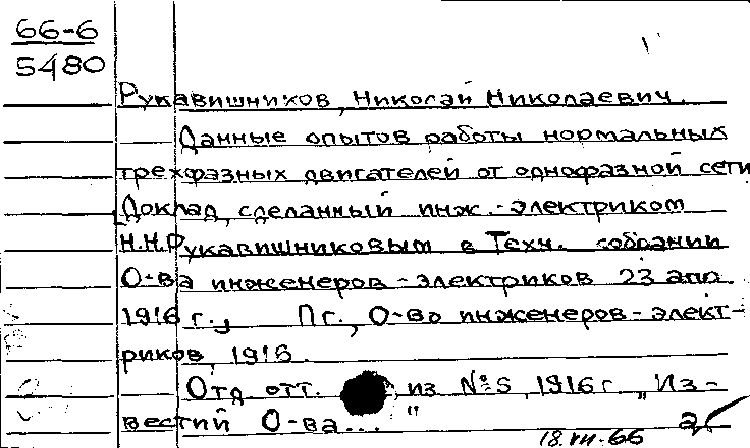 66-6
5480
Рукавишников, Николай Николаевич.
Данные опытов работы нормальных
трехфазных двигателей от однофазной сети
Доклад, сделанный инж.-электриком
Н.Н.Рукавишниковым в Техн. собрании
О-ва инженеров-электриков 23 апр.
1916 г., Пг., О-во инженеров-элект-
риков, 1916.
Отд. отт. из №5, 1916 г. „Из-
вестий О-ва..."
18.VII-66